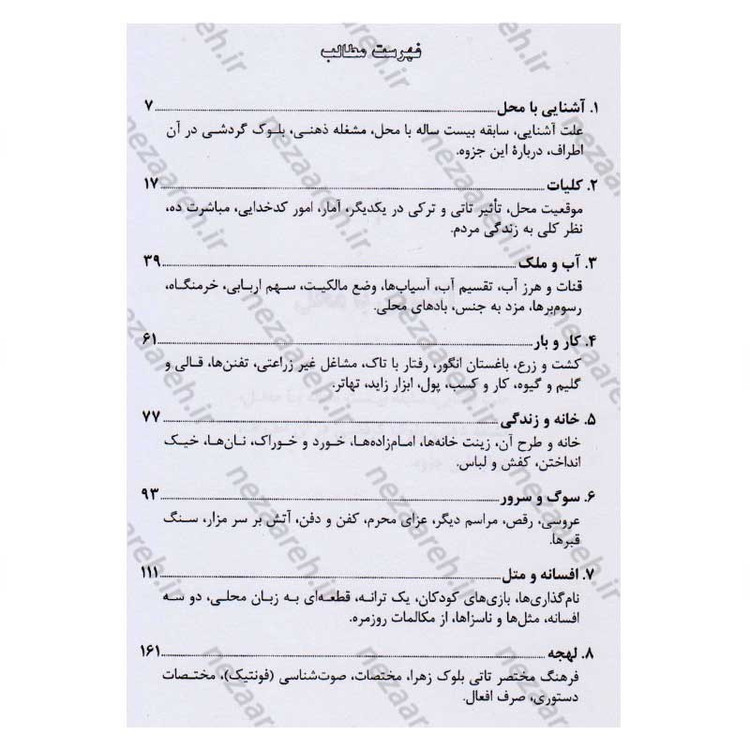 فهرست مطالب
۱. آشنایی با محل ........ ۷
علت آشنایی، سابقه بیست ساله با محل، مشغله ذهنی، بلوک گردشی در آن
اطراف، دربارهٔ این جزوه.
۲. کلیات ........ ۱۷
موقعیت محل، تأثیر تاتی و ترکی در یکدیگر، آمار، امور کدخدایی، مباشرت ده،
نظر کلی به زندگی مردم.
۳. آب و ملک ........ ۳۹
قنات و هرز آب، تقسیم آب، آسیاب‌ها، وضع مالکیت، سهم اربابی، خرمنگاه،
رسوم‌برها، مزد به جنس، بادهای محلی.
۴. کار و بار ........ ۶۱
کشت و زرع، باغستان انگور، رفتار با تاک، مشاغل غیر زراعتی، تفنن‌ها، قالی و
گلیم و گیوه، کار و کسب، پول، ابزار زاید، تهاتر.
۵. خانه و زندگی ........ ۷۷
خانه و طرح آن، زینت خانه‌ها، امام‌زاده‌ها، خورد و خوراک، نان‌ها، خیک
انداختن، کفش و لباس.
۶. سوگ و سرور ........ ۹۳
عروسی، رقص، مراسم دیگر، عزای محرم، کفن و دفن، آتش بر سر مزار، سنگ
قبرها.
۷. افسانه و متل ........ ۱۱۱
نام‌گذاری‌ها، بازی‌های کودکان، یک ترانه، قطعه‌ای به زبان محلی، دو سه
افسانه، مثل‌ها و ناسزاها، از مکالمات روزمره.
۸. لهجه ........ ۱۶۱
فرهنگ مختصر تاتی بلوک زهرا، مختصات، صوت‌شناسی (فونتیک)، مختصات
دستوری، صرف افعال.
nezaareh.ir